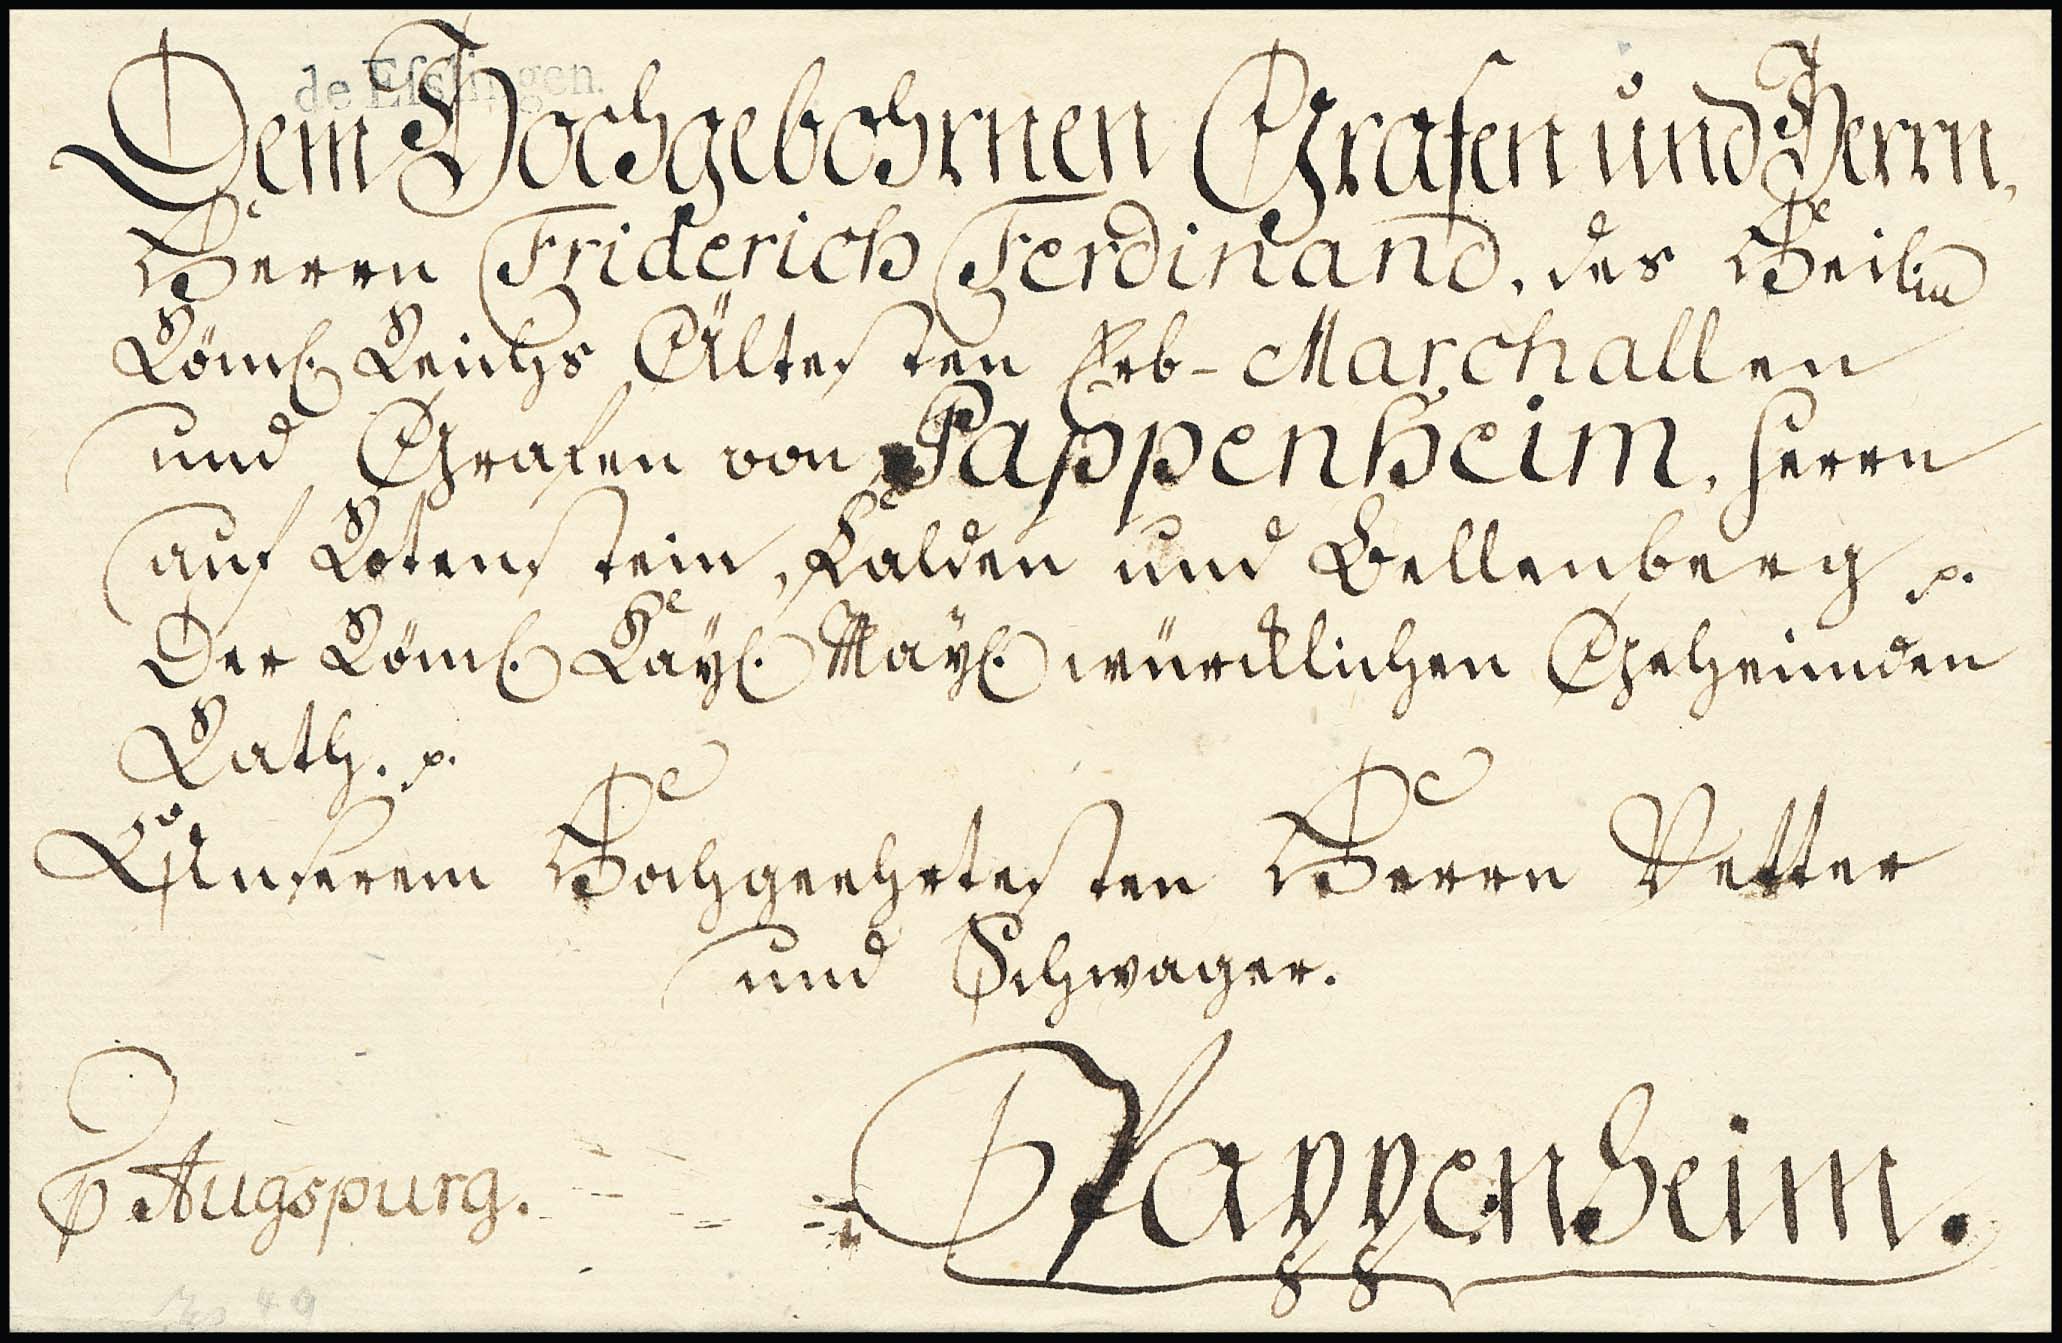 de Esslingen.
Dem Hochgebohrnen Grafen und Herrn,
Herrn Friderich Ferdinand, des Heil.
Röm. Reichs Ältesten Erb-Marchallen
und Grafen von Pappenheim, Herrn
auf Rotenstein, Kalden und Bellenberg p.
Der Röm. Kayl. Mayl. würcklichen Geheimden
Rath. p.
Unserem Hochgeehrtesten Herrn Vetter
und Schwager.
Augspurg.
Pappenheim.